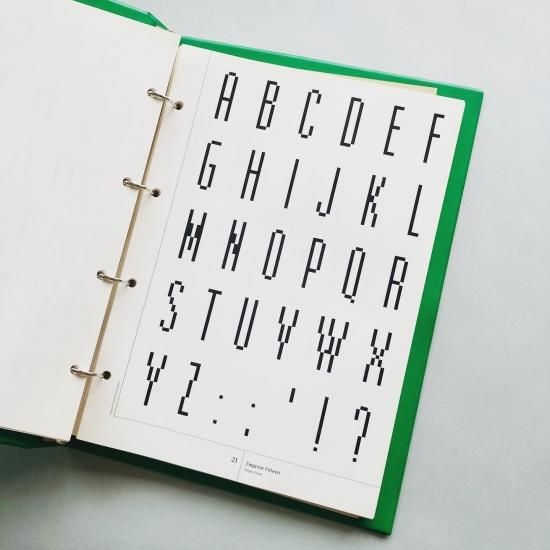 A B C D E F
G H I J K L
M N O P Q R
S T U V W X
Y Z : ; ' ! ?
21
Emperor Fifteen